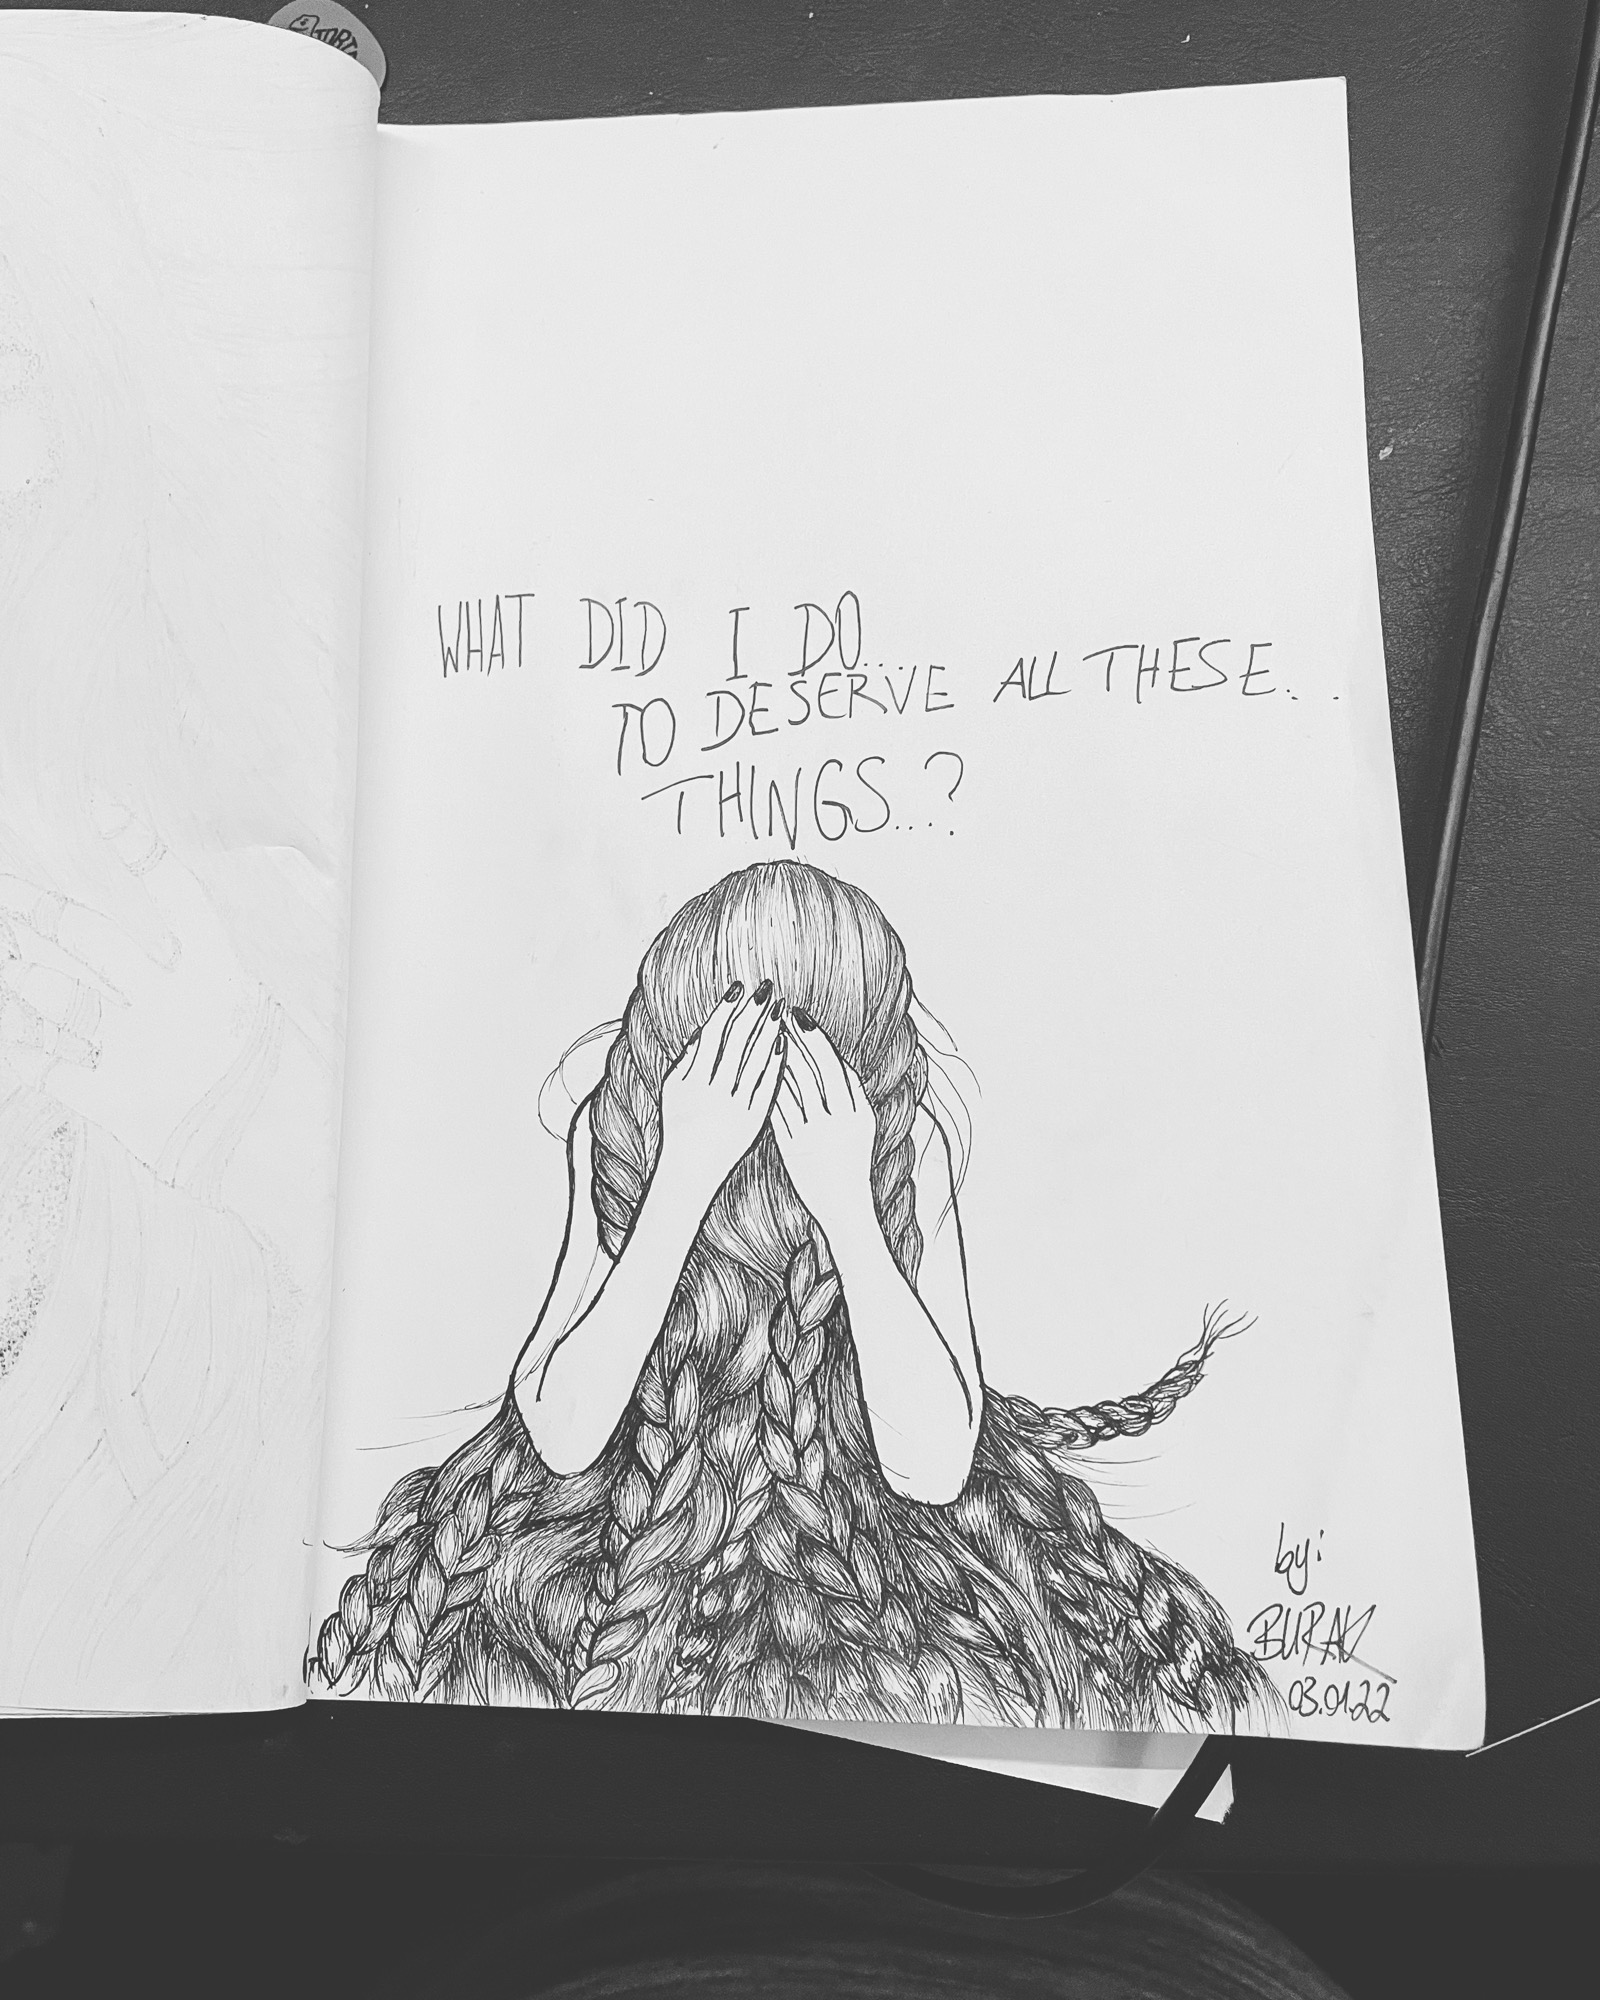 WHAT DID I DO...
TO DESERVE ALL THESE...
THINGS...?
by:
BURAK
03.01.22